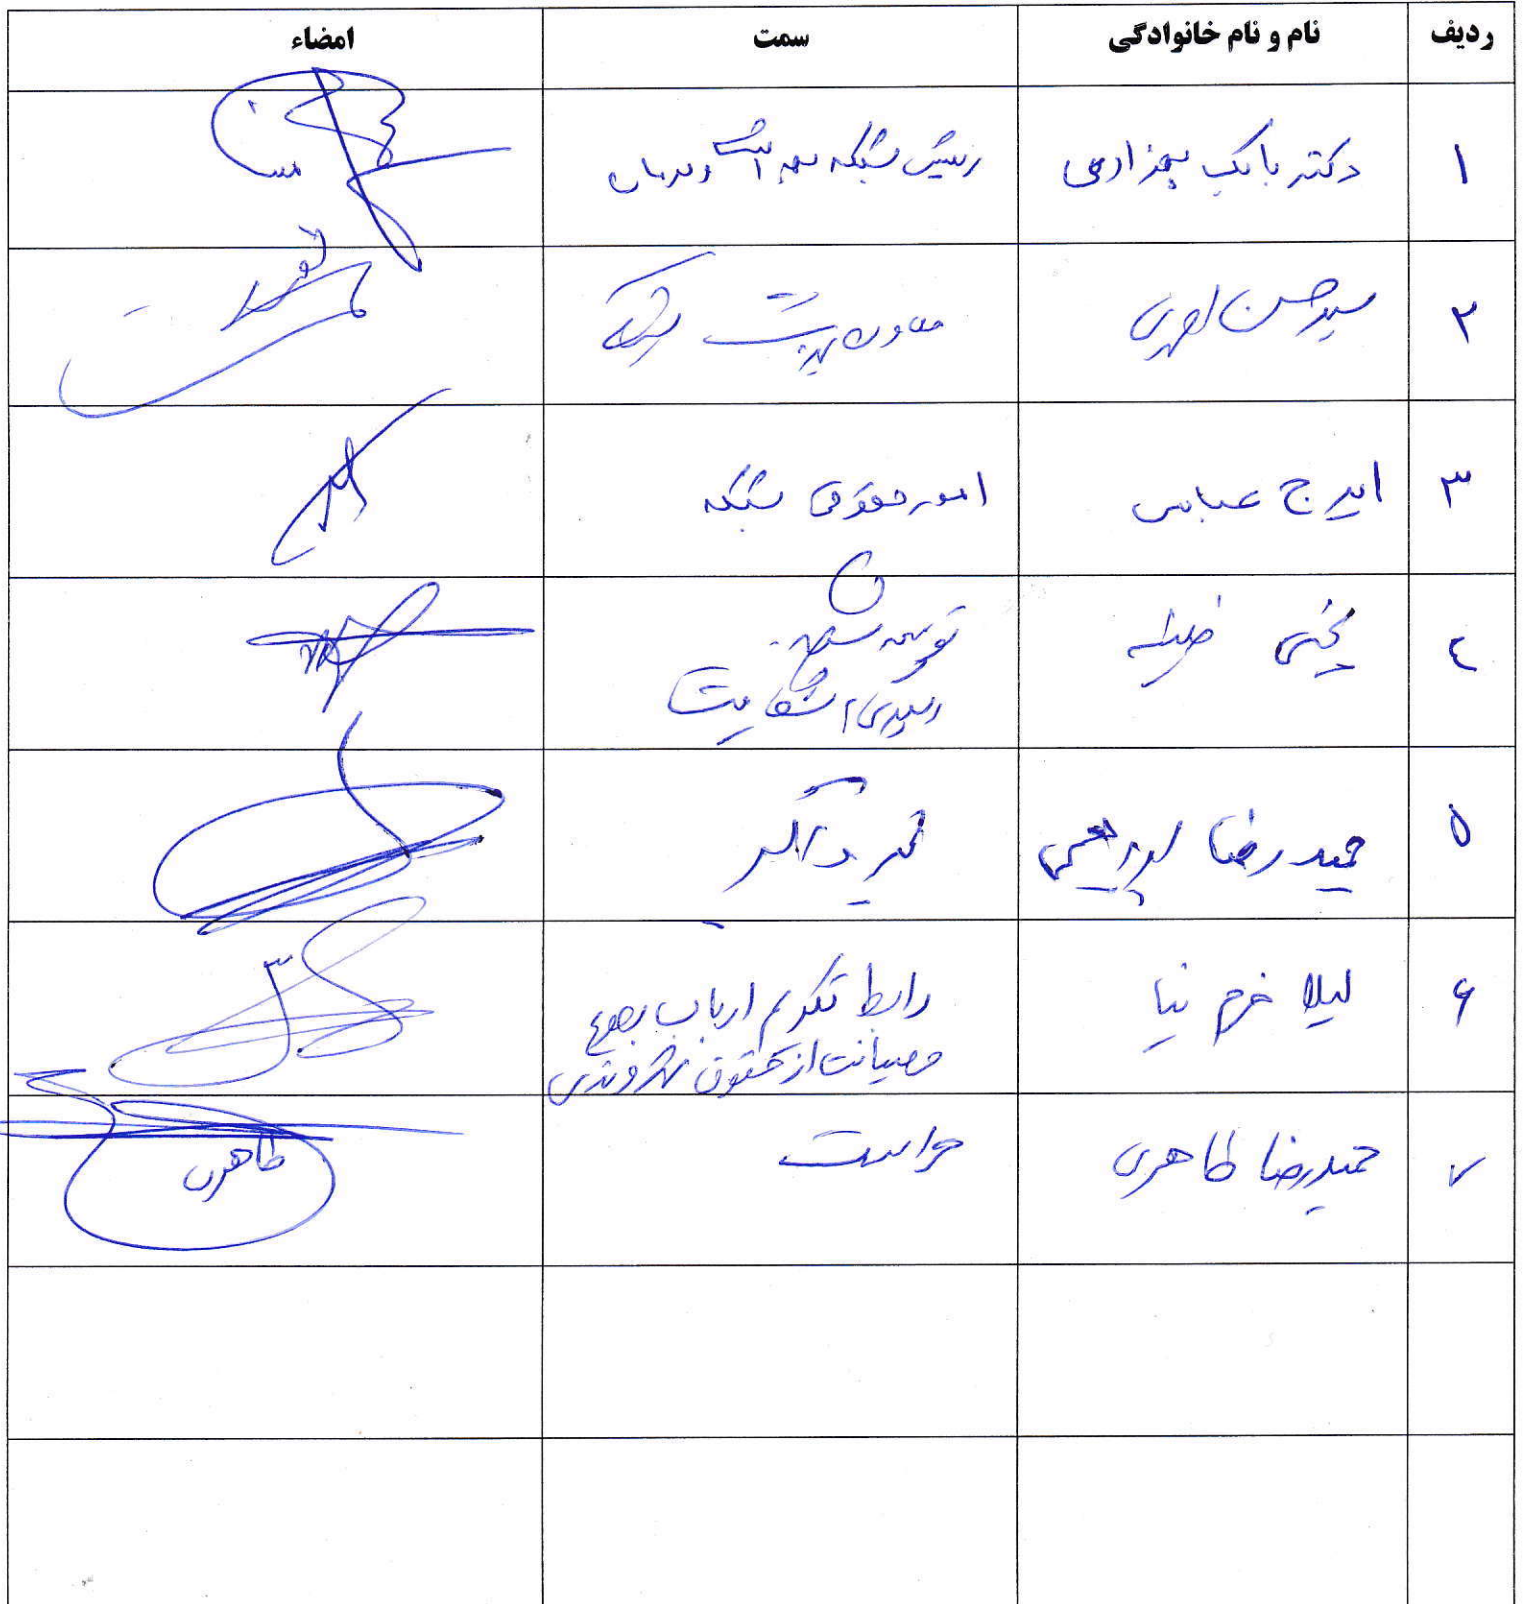 ردیف نام و نام خانوادگی سمت امضاء
۱ دکتر بابک بهزادی رئیس شبکه بهداشت و درمان
۲ سید حسن معاون بهداشت شبکه
۳ ایرج عباسی امور حقوقی شبکه
۴ توسعه شبکه
رسیدگی شکایت
۵ حمیدرضا
۶ لیلا خرم نیا رابط تکریم ارباب رجوع
صیانت از حقوق شهروندی
۷ حمیدرضا طاهری حراست طاهری